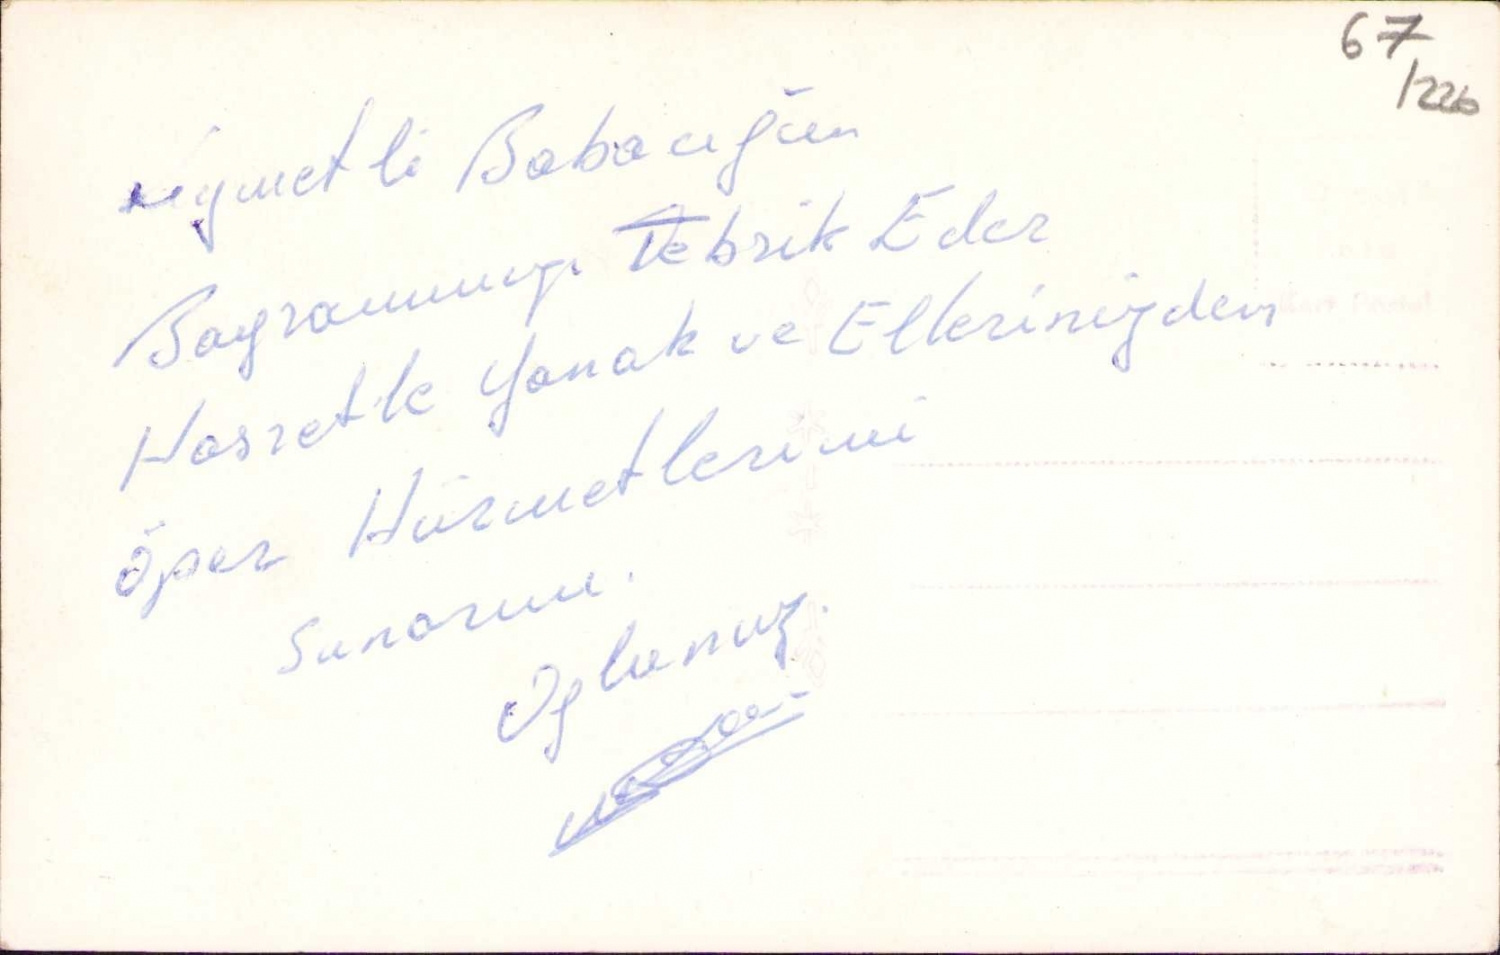 67
/226
Kıymetli Babacığım
Bayramınızı Tebrik Eder
Hasretle Yanak ve Ellerinizden
Öper Hürmetlerimi
Sunarım.
Oğlunuz.